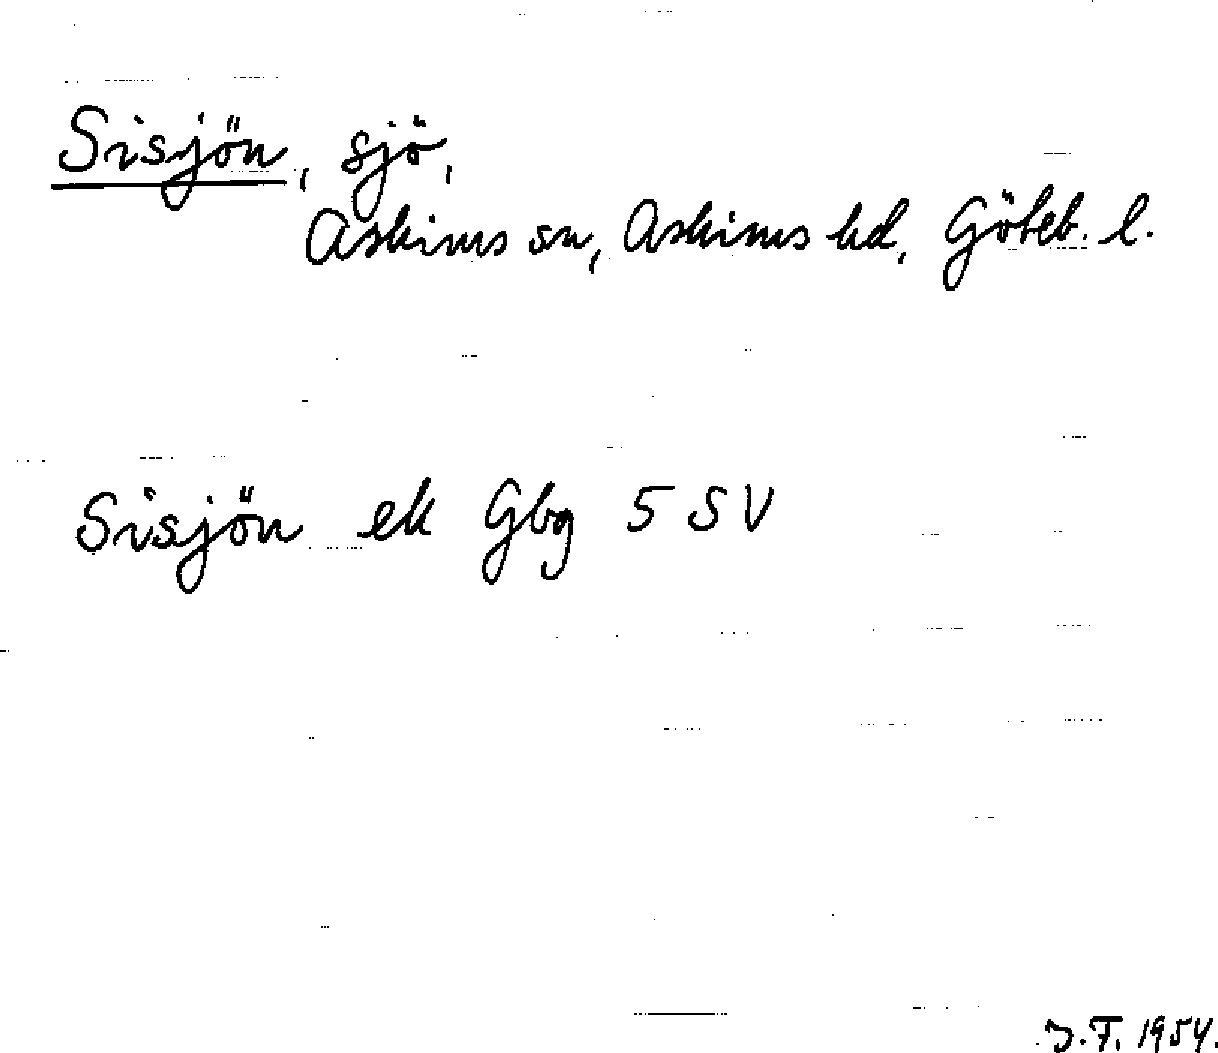 Sisjön, sjö,
Askims sn, Askims hd, Göteb. l.
Sisjön ek Gbg 5 SV
J.F. 1954.